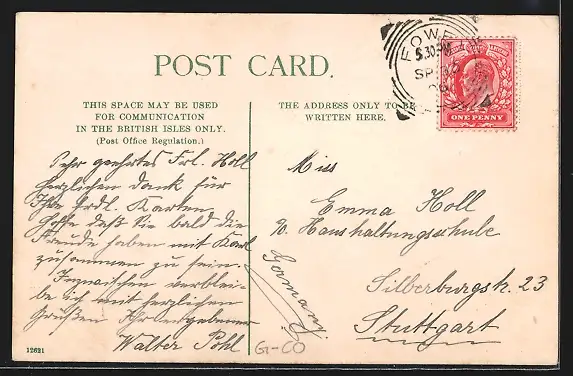 POST CARD.
THIS SPACE MAY BE USED
FOR COMMUNICATION
IN THE BRITISH ISLES ONLY.
(Post Office Regulation.)
THE ADDRESS ONLY TO BE
WRITTEN HERE.
FOWEY
5.30PM
SP
06
ONE PENNY
Sehr geehrtes Frl. Holl
herzlichen Dank für
Ihre frdl. Karten
hoffe daß Sie bald die
Freude haben mit Karl
zusammen zu sein.
Inzwischen verblei-
be ich mit herzlichen
Grüßen Ihr ergebener
Walter Pohl
Miss
Emma Holl
Haushaltungsschule
Silberburgstr. 23
Stuttgart
Germany.
G-CO
12621